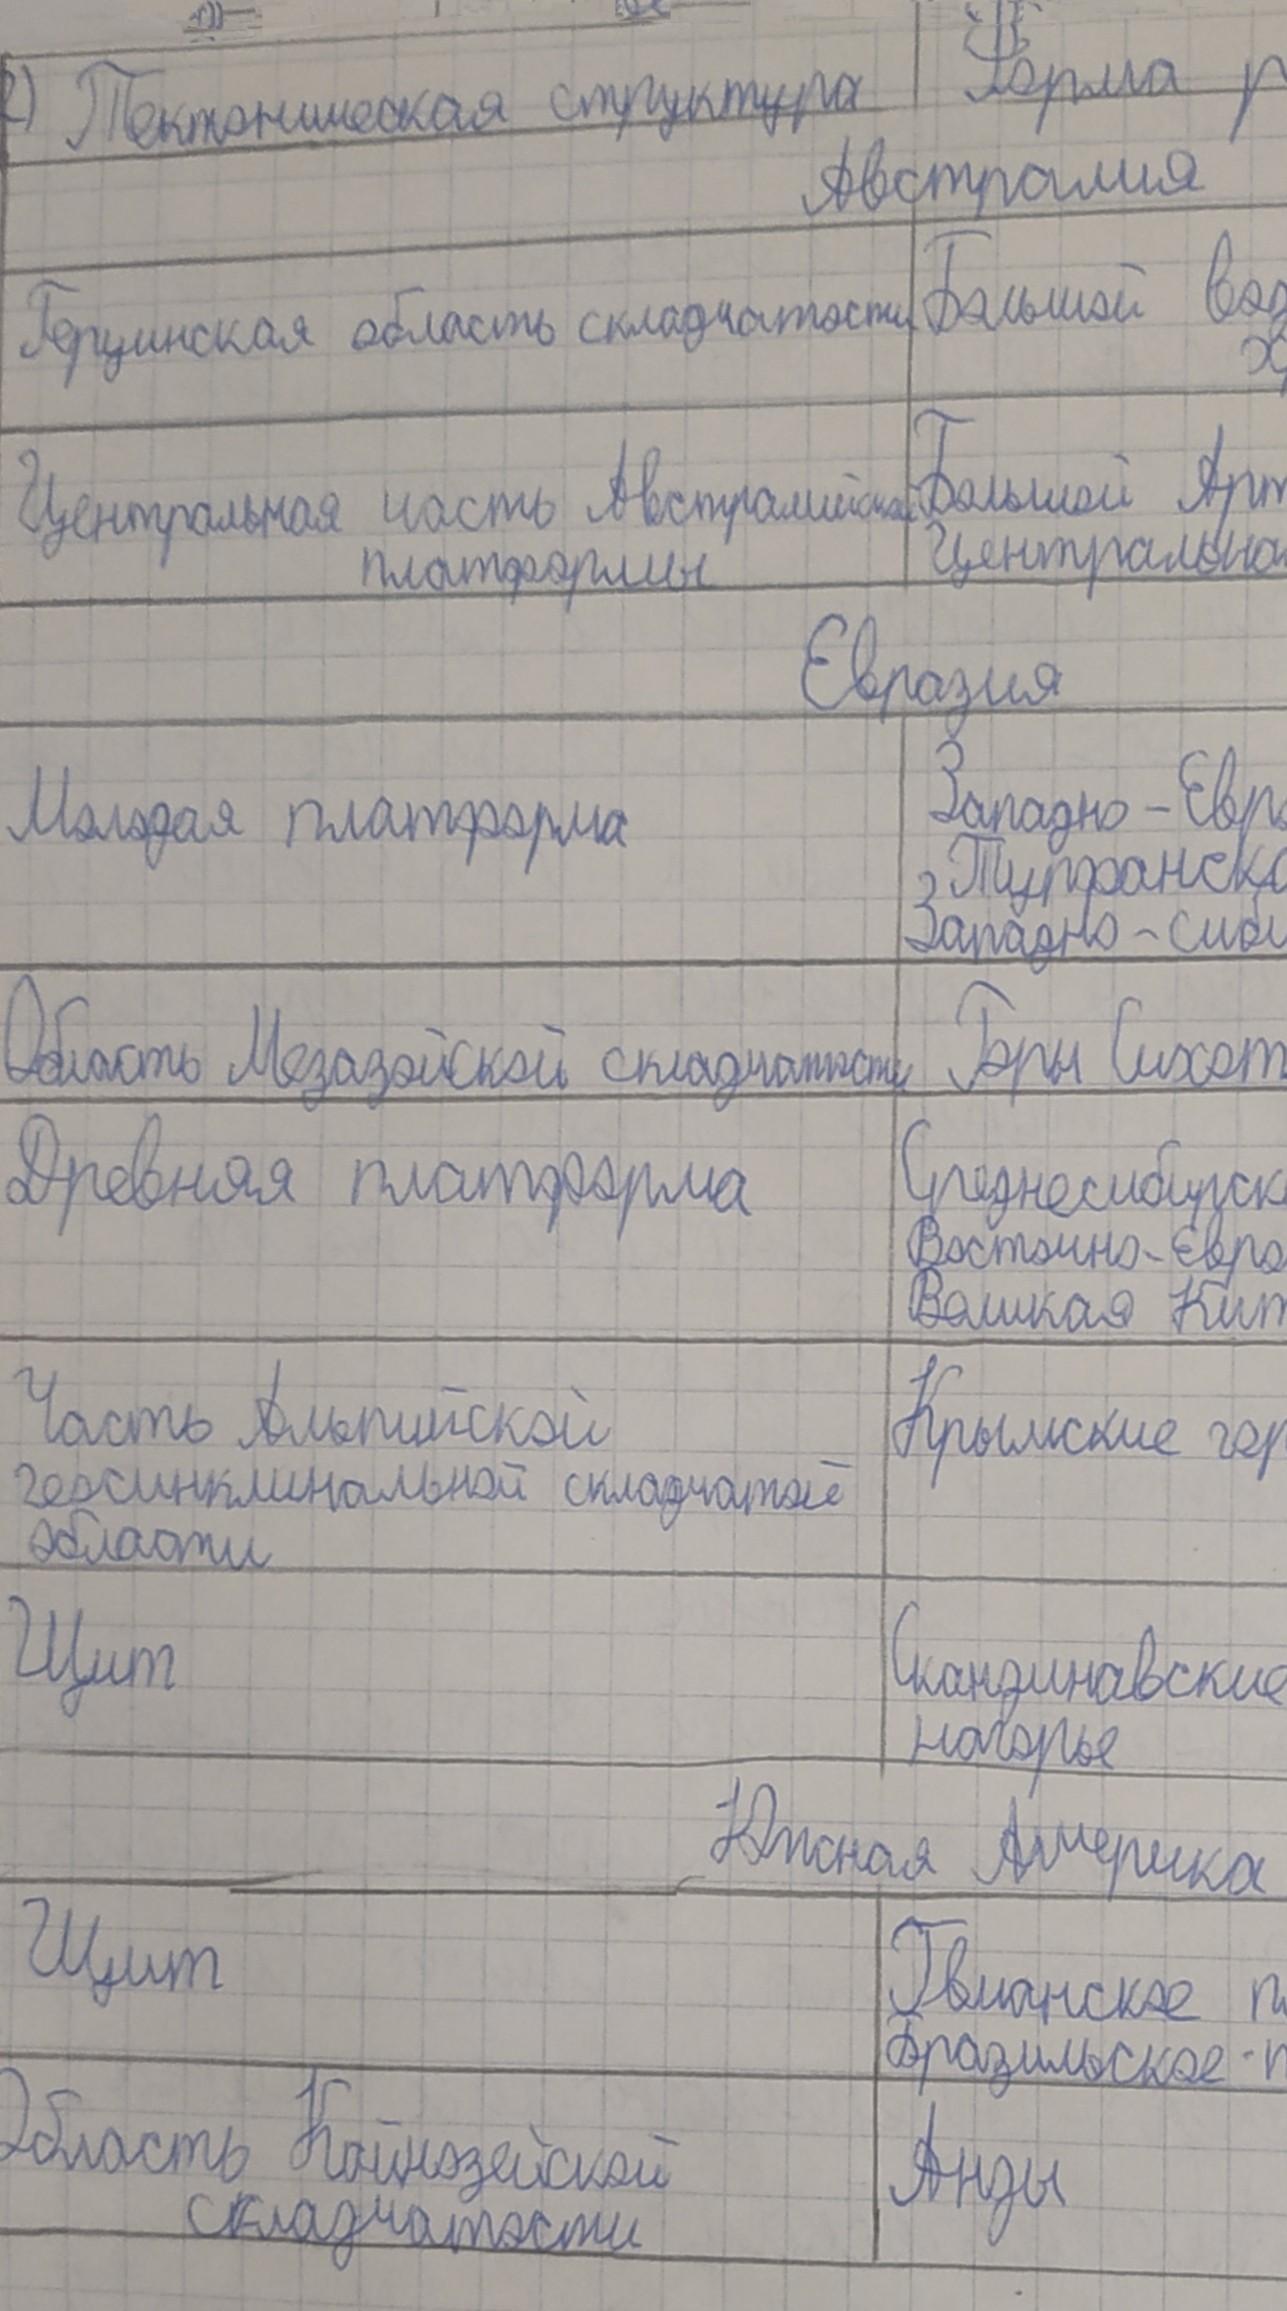 2) Тектоническая структура Форма р
Австралия
Герцинская область складчатости Большой вод
хр
Центральная часть Австралийской Большой Арт
платформы Центральна
Евразия
Молодая платформа Западно-Евро
Турфанска
Западно-сиби
Область Мезазойской складчатости Горы Сихот
Древняя платформа Среднесибирск
Восточно-Евро
Великая Кит
Часть Альпийской Крымские гор
геосинклинальной складчатой
области
Щит Скандинавские
нагорье
Южная Америка
Щит Гвианское п
Бразильское-п
Область Кайнозейской Анды
складчатости